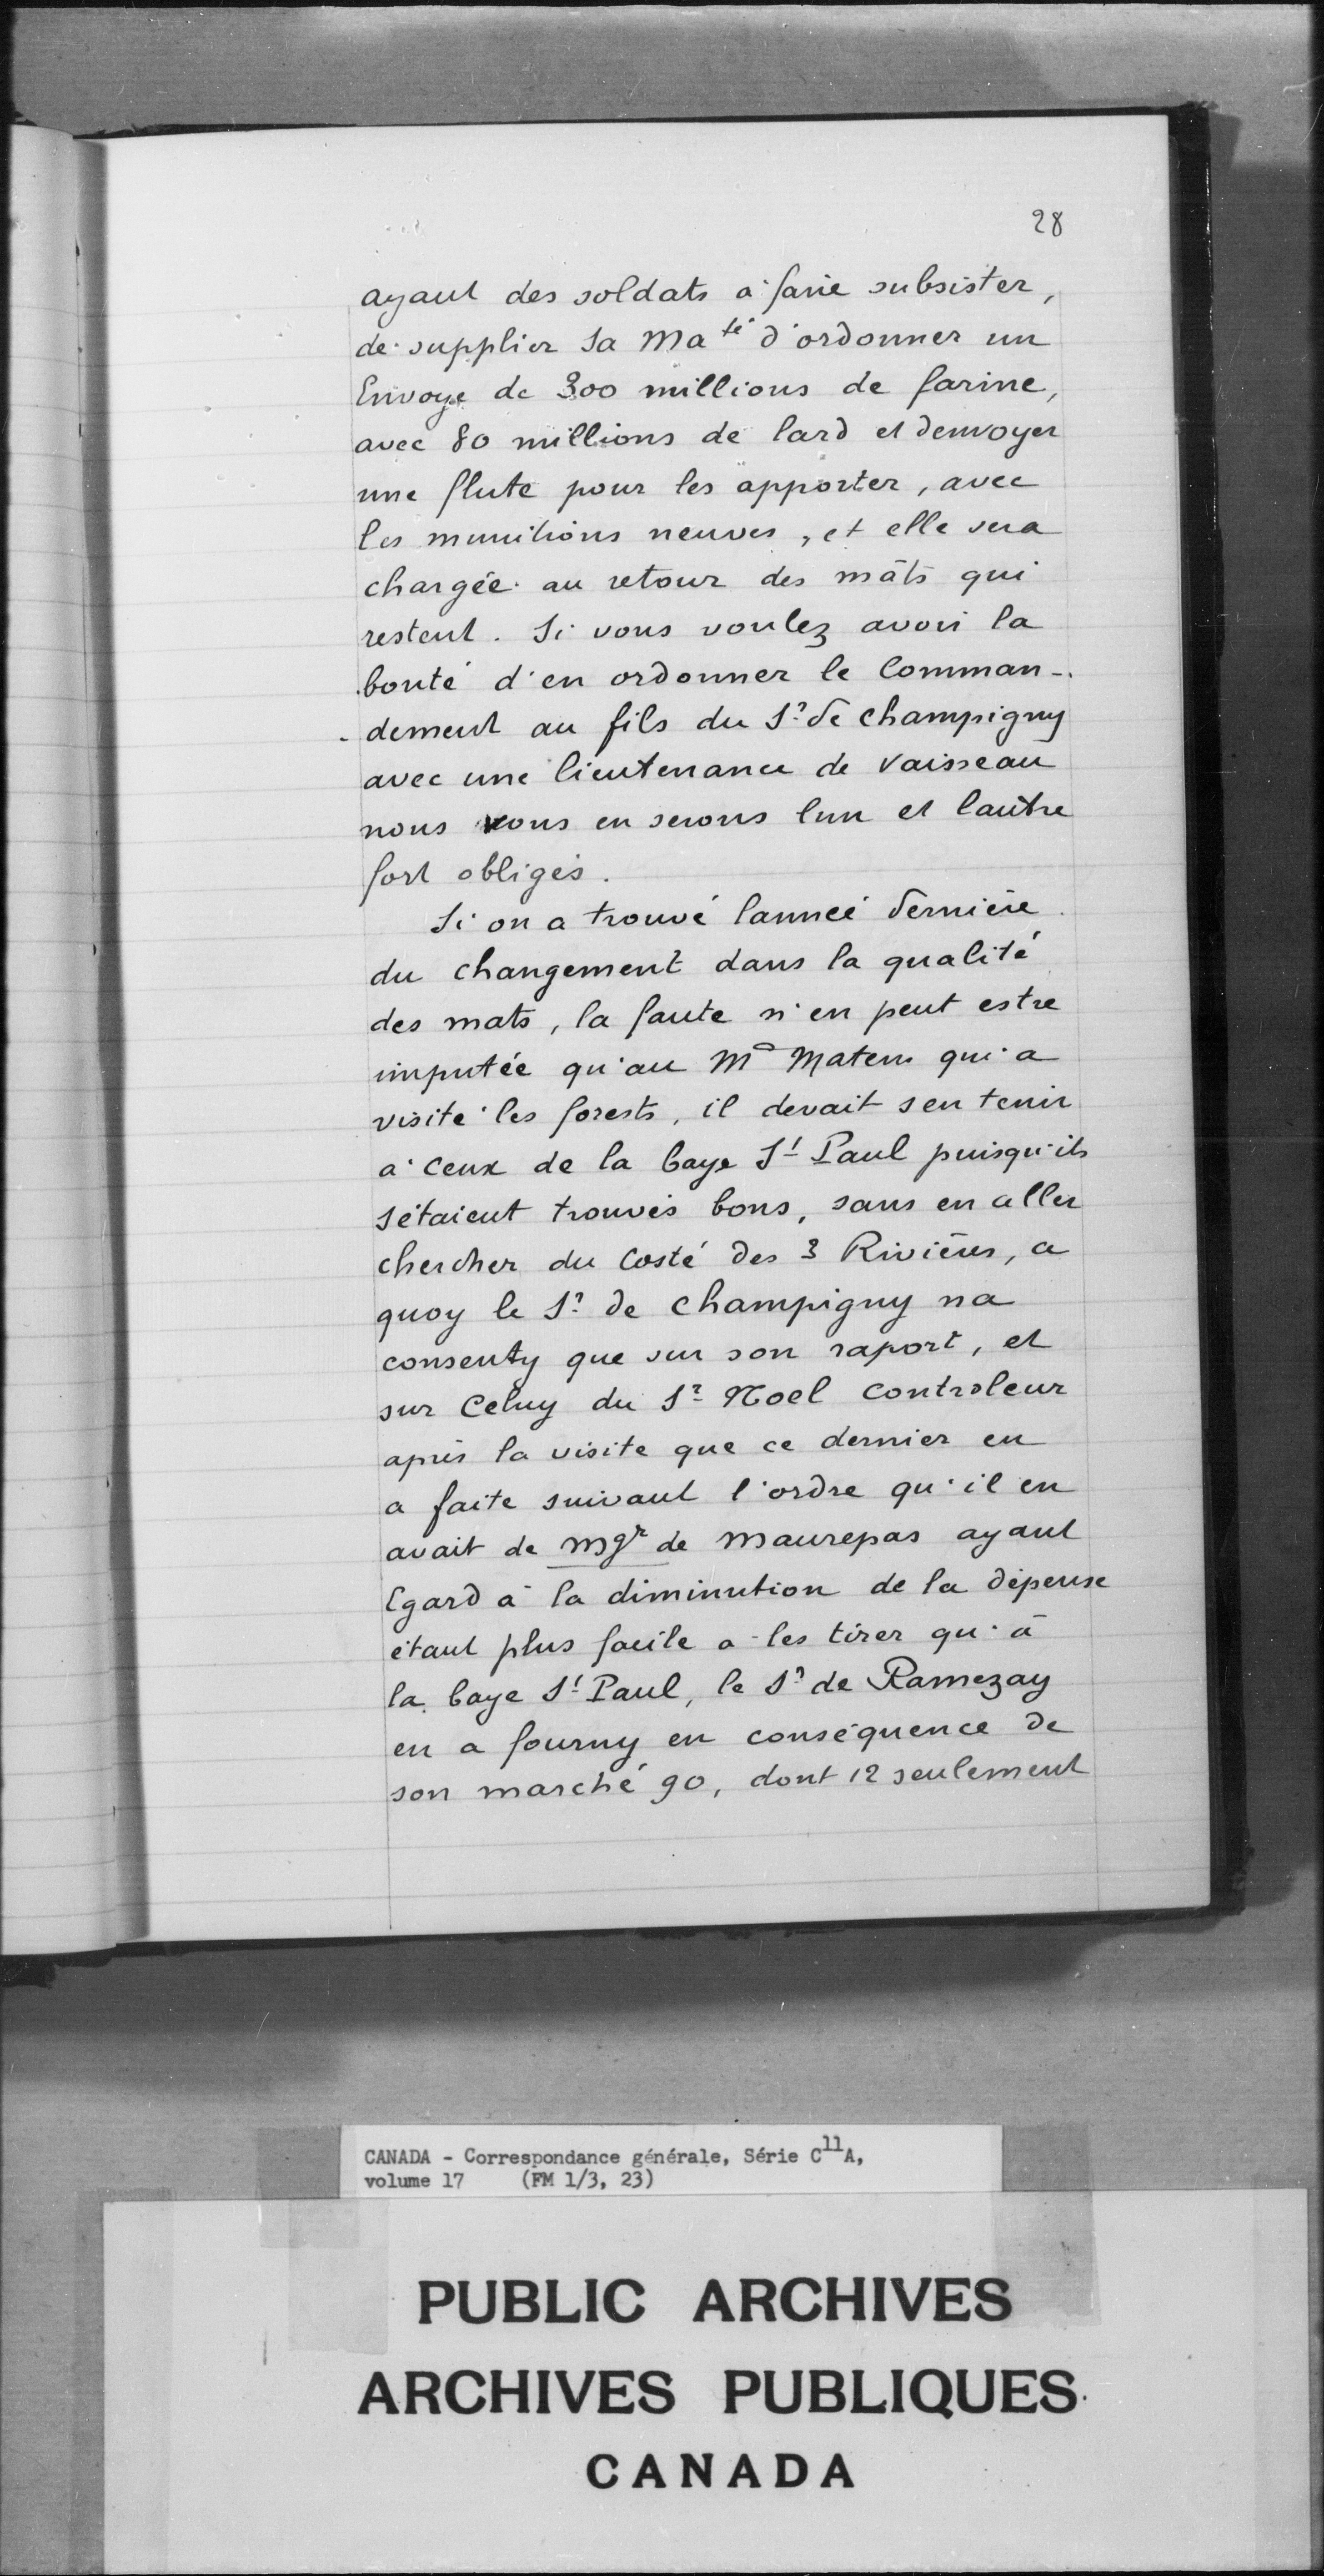 28
ayant des soldats a faire subsister,
de supplier Sa Ma té d'ordonner un
Envoye de 300 millions de farine,
avec 80 millions de lard et denvoyer
une flute pour les apporter, avec
les munitions neuves, et elle sera
chargée au retour des mâts qui
restent. Si vous voulez avoir la
bonté d'en ordonner le Comman-
dement au fils du Sr de Champigny
avec une lieutenance de vaisseau
nous vous en serons lun et lautre
fort obligés.
Si on a trouvé lanneé dernière
du changement dans la qualité
des mats, la faute n'en peut estre
imputée qu'au Me Mateur qui a
visité les forests, il devait s en tenir
a ceux de la baye St Paul puisqu'ils
sétaient trouvés bons, sans en aller
chercher du Costé des 3 Rivières, a
quoy le Sr de Champigny na
consenty que sur son raport, et
sur Celuy du Sr Noel Controleur
après la visite que ce dernier en
a faite suivant l'ordre qu'il en
avait de Mgr de Maurepas ayant
Egard à la diminution de la dépense
étant plus facile a les tirer qu'à
la baye St Paul, le Sr de Ramezay
en a fourny en conséquence de
son marché 90, dont 12 seulement
CANADA - Correspondance générale, Série C11A,
volume 17 (FM 1/3, 23)
PUBLIC ARCHIVES
ARCHIVES PUBLIQUES
CANADA